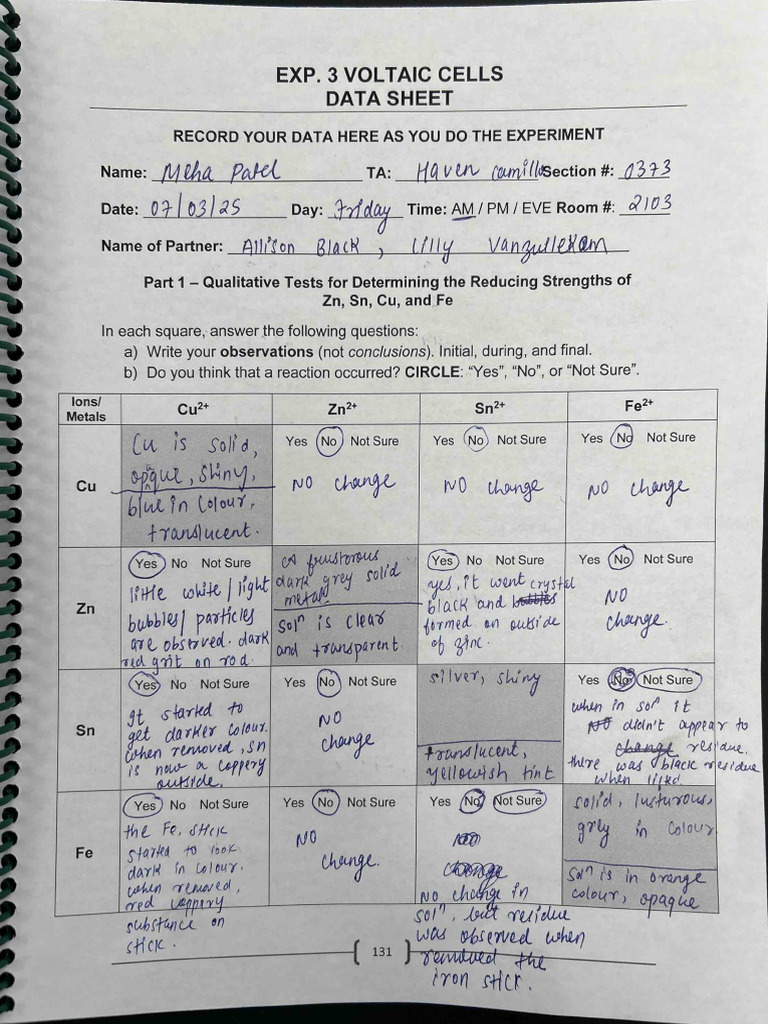 EXP. 3 VOLTAIC CELLS
DATA SHEET
RECORD YOUR DATA HERE AS YOU DO THE EXPERIMENT
Name: Meha Patel TA: Haven Camillo Section #: 0373
Date: 07/03/25 Day: Friday Time: AM / PM / EVE Room #: 2103
Name of Partner: Allison Black, Lilly
Part 1 – Qualitative Tests for Determining the Reducing Strengths of
Zn, Sn, Cu, and Fe
In each square, answer the following questions:
a) Write your observations (not conclusions). Initial, during, and final.
b) Do you think that a reaction occurred? CIRCLE: “Yes”, “No”, or “Not Sure”.
Ions/
Metals
Cu²⁺
Zn²⁺
Sn²⁺
Fe²⁺
Cu
Cu is solid,
opaque, shiny,
blue in colour,
translucent.
Yes No Not Sure
NO change
Yes No Not Sure
NO change
Yes No Not Sure
NO change
Zn
Yes No Not Sure
little white/light
bubbles/particles
are observed. dark
red grit on rod.
dark grey solid
metal.
solⁿ is clear
and transparent.
Yes No Not Sure
yes, it went crystal
black and bubbles
formed on outside
of zinc.
Yes No Not Sure
NO
change.
Sn
Yes No Not Sure
It started to
get darker colour.
when removed, sn
is now a coppery
outside.
Yes No Not Sure
NO
change
silver, shiny
translucent,
yellowish tint
Yes No Not Sure
when in solⁿ it
NO didn't appear to
change residue.
there was black residue
when lifted.
Fe
Yes No Not Sure
the Fe, stick
started to look
dark in colour.
when removed,
red coppery
substance on
stick.
Yes No Not Sure
NO
change.
Yes No Not Sure
NO
change
NO change in
solⁿ, but residue
was observed when
removed the
iron stick.
solid, lusturous,
grey in colour
Solⁿ is in orange
colour, opaque
131